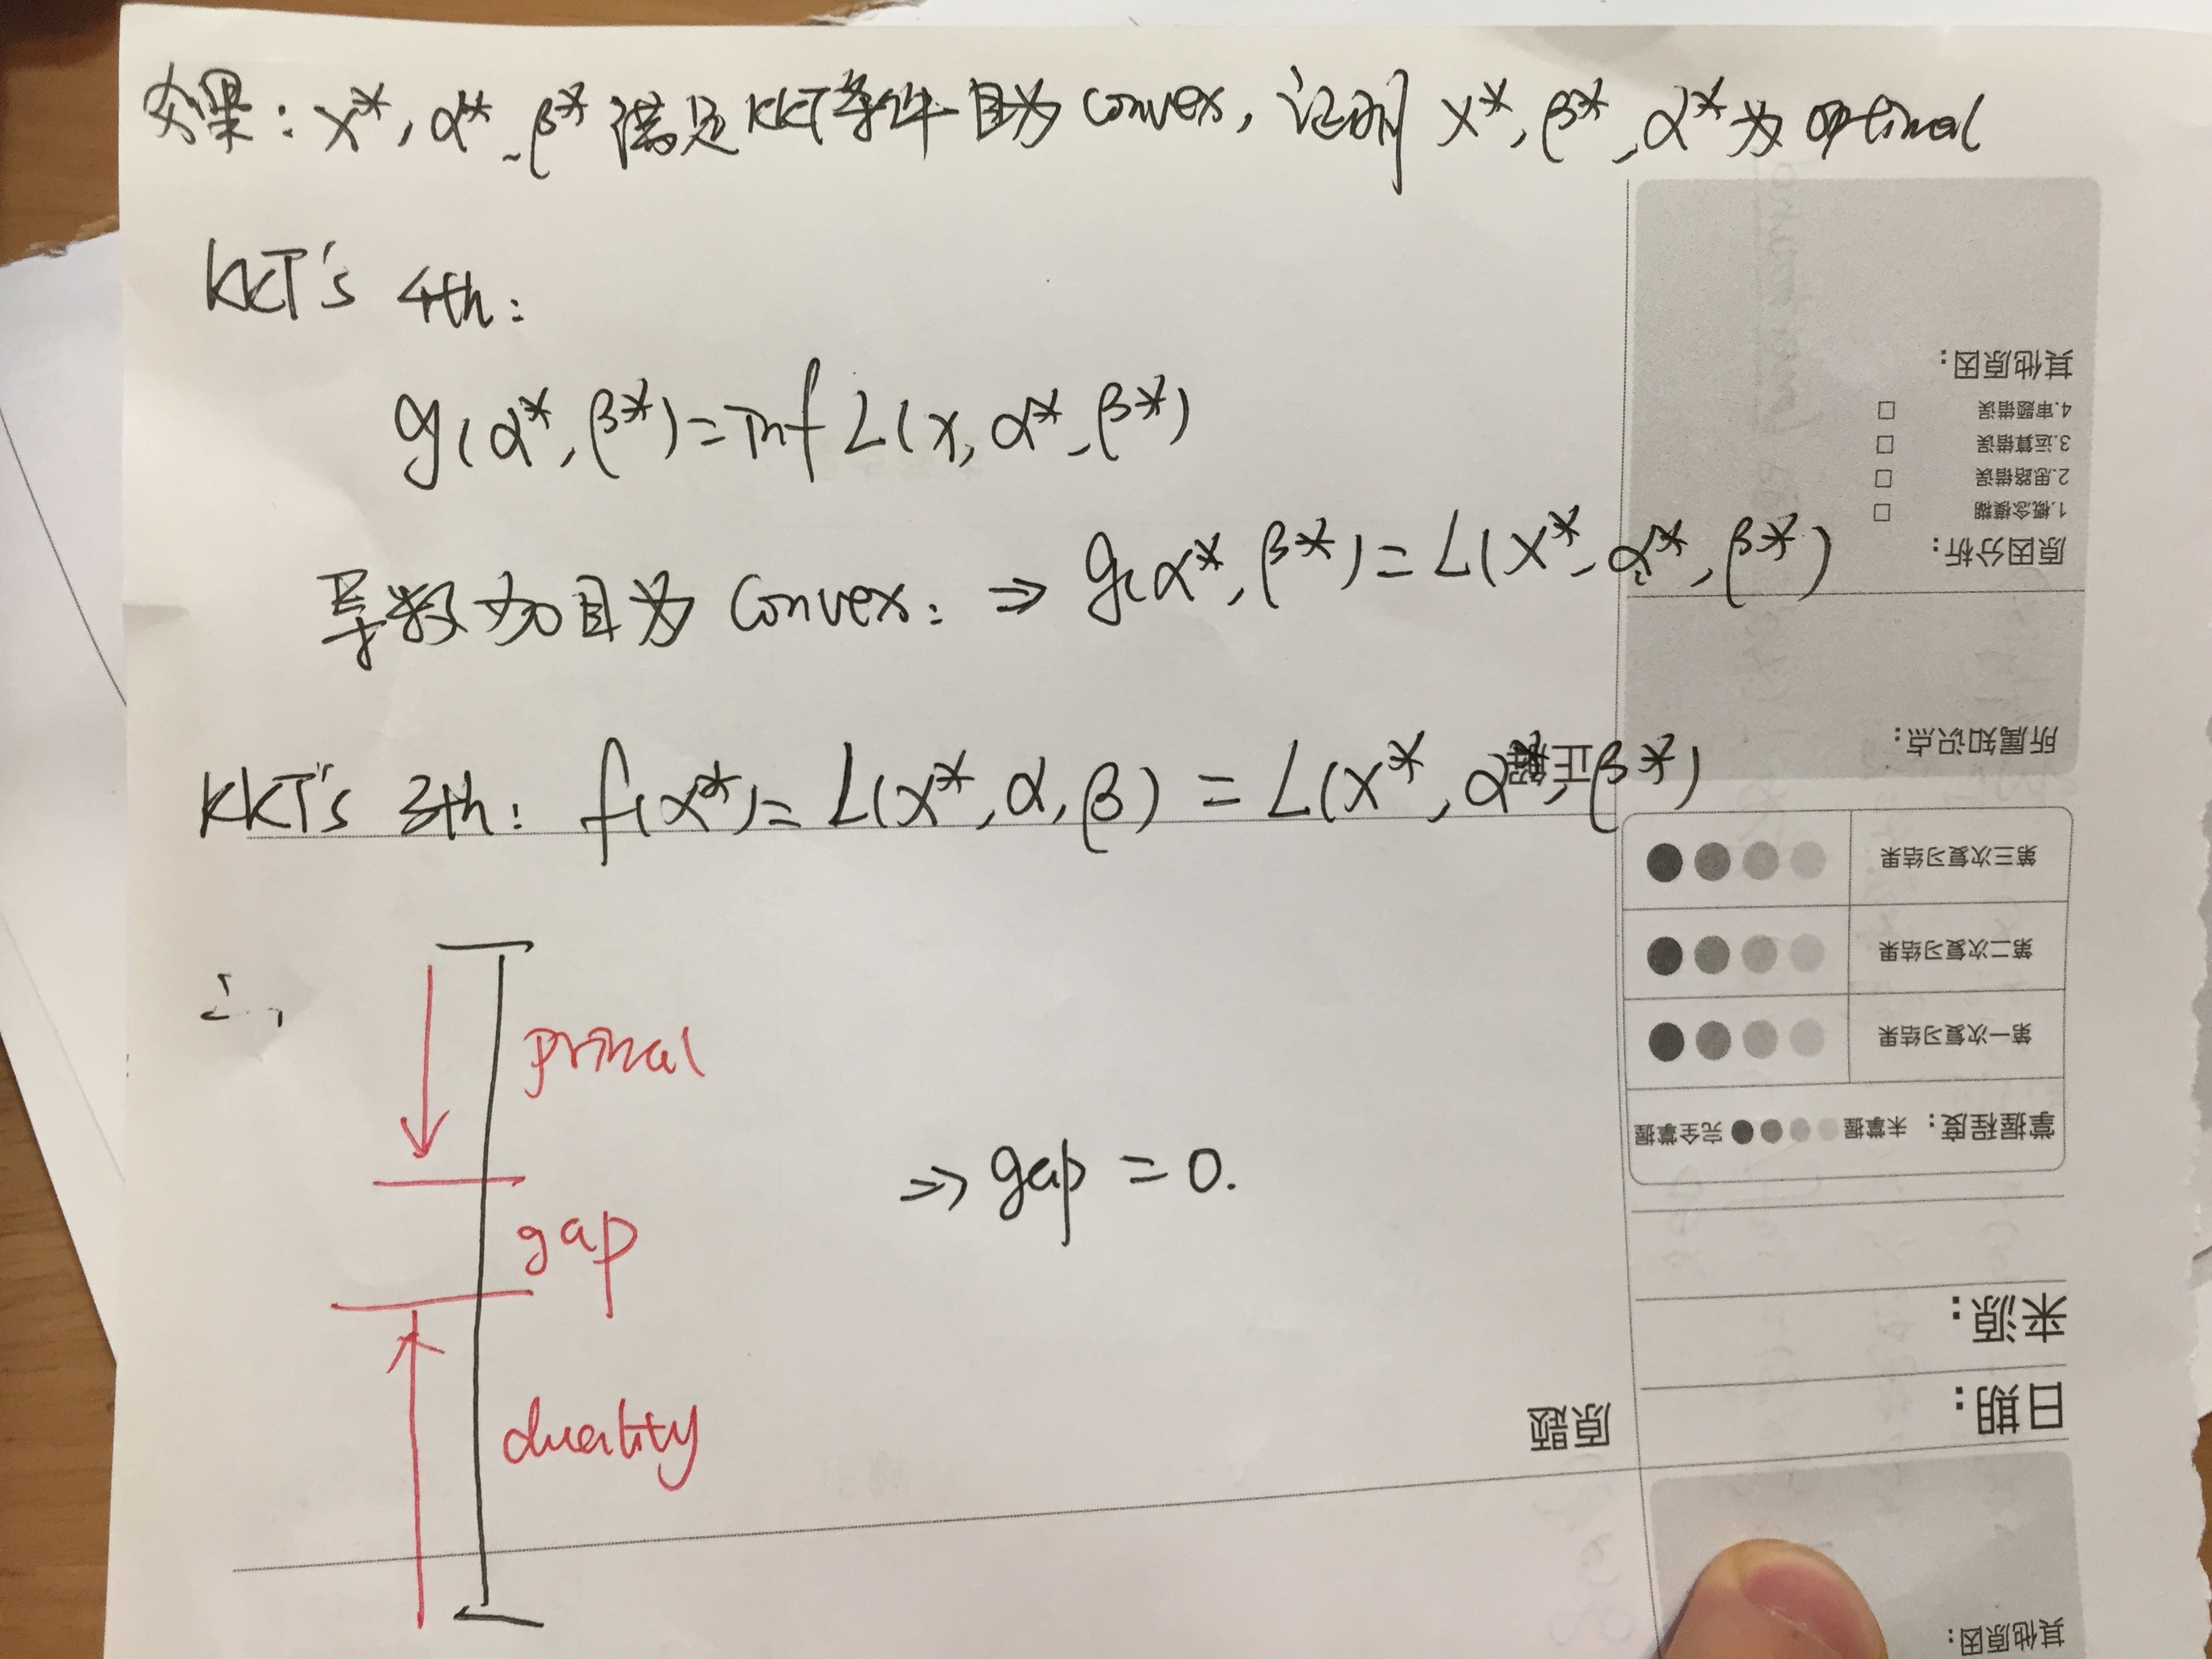 如果：x*, α*, β* 满足KKT条件 且为 convex, 证明 x*, β*, α* 为 optimal
KKT's 4th:
g(α*, β*) = inf L(x, α*, β*)
导数为0且为 convex: ⇒ g(α*, β*) = L(x*, α*, β*)
KKT's 3th: f(x*) = L(x*, α, β) = L(x*, α*, β*)
primal
gap
⇒ gap = 0.
duality
其他原因：
4.审题错误 □
3.运算错误 □
2.思路错误 □
1.概念模糊 □
原因分析：
所属知识点：
正解
第三次复习结果
第二次复习结果
第一次复习结果
掌握程度： 未掌握 完全掌握
来源：
日期：
原题
其他原因：